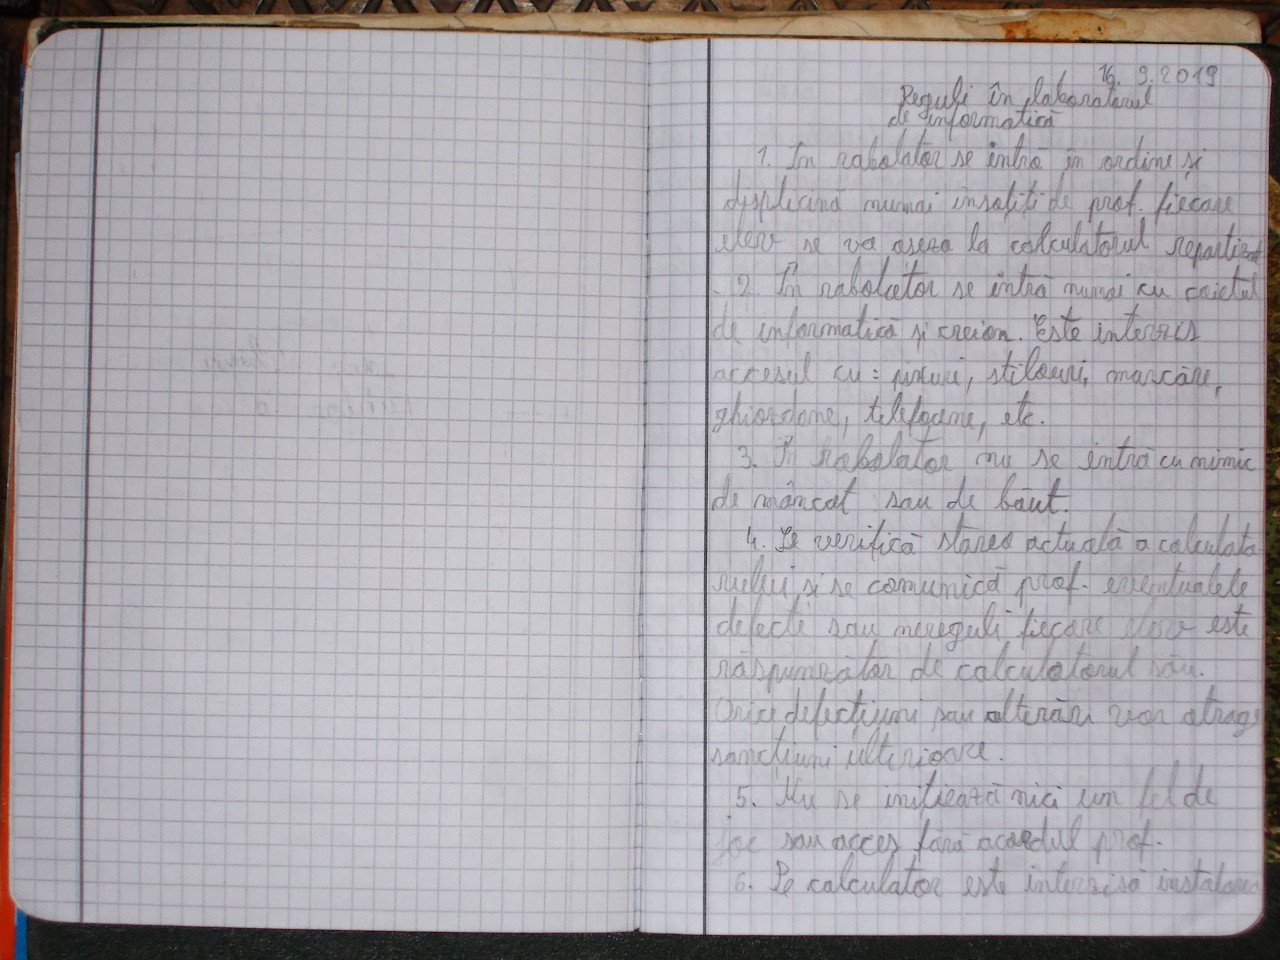 16. 9. 2019
Reguli în laboratorul
de informatică
1. În rabolator se intră în ordine și
displicină numai însoțiți de prof. fiecare
elev se va așeza la calculatorul repartizat
2. În rabolator se intră numai cu caietul
de informatică și creion. Este interzis
accesul cu: pixuri, stilouri, marcăre,
ghiozdane, telefoane, etc.
3. În rabolator nu se intră cu nimic
de mâncat sau de băut.
4. Se verifică starea actuală a calculato
rului și se comunică prof. eventualele
defecte sau nereguli fiecare elev este
răspunzător de calculatorul său.
Orice defecțiuni sau alterări vor atrage
sancțiuni ulterioare.
5. Nu se inițiează nici un fel de
joc sau acces fără acordul prof.
6. Pe calculator este interzisă instalarea